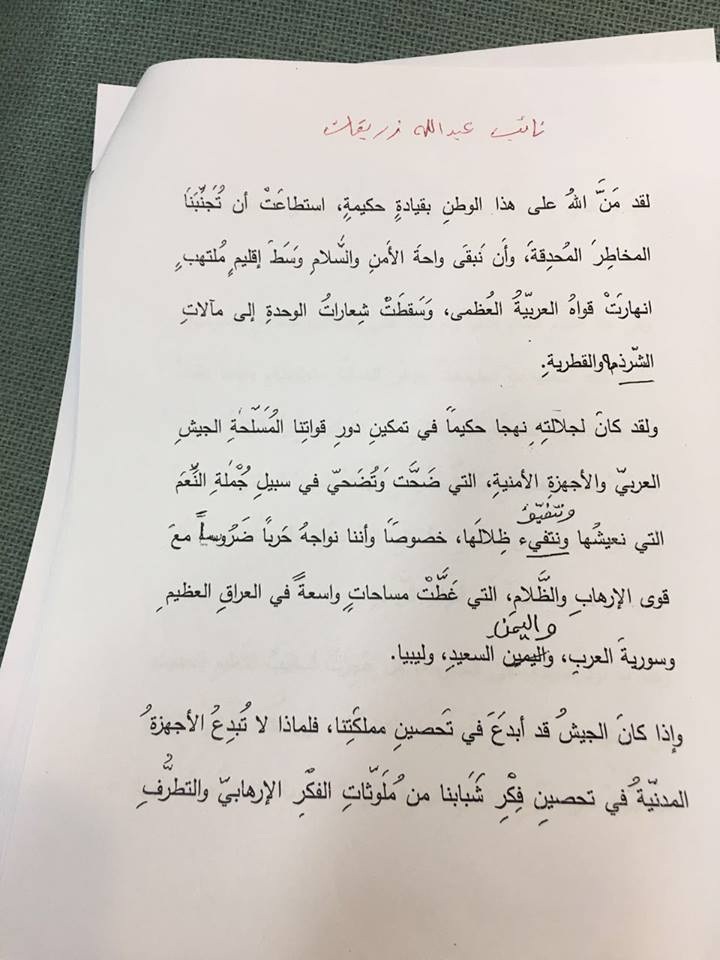 نائب عبدالله زريقات
لقد مَنَّ اللهُ على هذا الوطنِ بقيادةٍ حكيمةٍ، استطاعَتْ أن تُجَنِّبَنَا
المخاطِرَ المُحدِقةَ، وأَن نَبقَى واحةَ الأَمنِ والسَّلامِ وَسَطَ إقليمٍ مُلتهبٍ
انهارَتْ قواهُ العربيّةُ العُظمى، وَسَقطَتْ شِعاراتُ الوحدةِ إلى مآلاتِ
الشّرذمِ والقطريةِ.
ولقد كانَ لجلالتِهِ نهجا حكيماً في تمكينِ دورِ قواتِنا المُسَلّحةِ الجيشِ
العربيّ والأجهزةِ الأمنيةِ، التي ضَحَّت وَتُضَحيّ في سبيلِ جُمْلةِ النِّعَمَ
وتتفيّؤ
التي نعيشُها ونتفيء ظِلالَها، خصوصَاً وأننا نواجهُ حَرباً ضَرُوساً معَ
قوى الإرهابِ والظَّلامِ، التي غَطَّتْ مساحاتٍ واسعةً في العراقِ العظيمِ
واليمَن
وسوريةَ العربِ، واليمين السعيدِ، وليبيا.
وإذا كانَ الجيشُ قد أبدَعَ في تَحصينِ مملكَتِنا، فلماذا لا تُبدِعُ الأجهزةُ
المدنيّةُ في تحصينِ فِكْرِ شَبَابنا من مُلَوثّاتِ الفكْرِ الإرهابيّ والتطرُّفِ